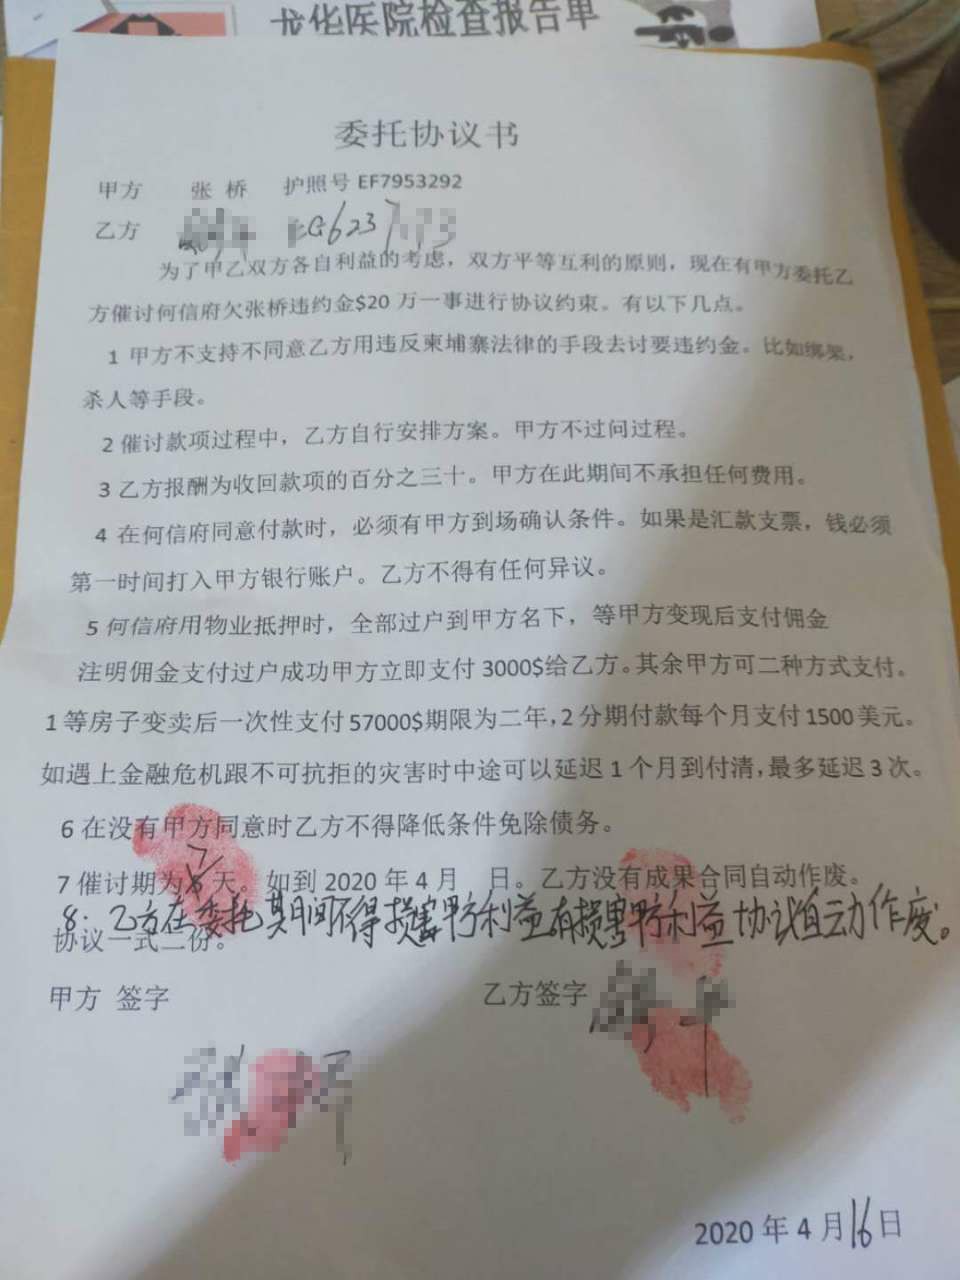 龙华医院检查报告单
委托协议书
甲方 张 桥 护照号 EF7953292
乙方 G6237
为了甲乙双方各自利益的考虑，双方平等互利的原则，现在有甲方委托乙
方催讨何信府欠张桥违约金$20 万一事进行协议约束。有以下几点。
1 甲方不支持不同意乙方用违反柬埔寨法律的手段去讨要违约金。比如绑架，
杀人等手段。
2 催讨款项过程中，乙方自行安排方案。甲方不过问过程。
3 乙方报酬为收回款项的百分之三十。甲方在此期间不承担任何费用。
4 在何信府同意付款时，必须有甲方到场确认条件。如果是汇款支票，钱必须
第一时间打入甲方银行账户。乙方不得有任何异议。
5 何信府用物业抵押时，全部过户到甲方名下，等甲方变现后支付佣金
注明佣金支付过户成功甲方立即支付 3000$给乙方。其余甲方可二种方式支付。
1 等房子变卖后一次性支付 57000$期限为二年，2 分期付款每个月支付 1500 美元。
如遇上金融危机跟不可抗拒的灾害时中途可以延迟 1 个月到付清，最多延迟 3 次。
6 在没有甲方同意时乙方不得降低条件免除债务。
7 催讨期为7天。如到 2020 年 4 月 日。乙方没有成果合同自动作废。
8：乙方在委托期间不得损害甲方利益有损害甲方利益协议自动作废。
协议一式二份。
甲方 签字 乙方签字
2020 年 4 月 16 日